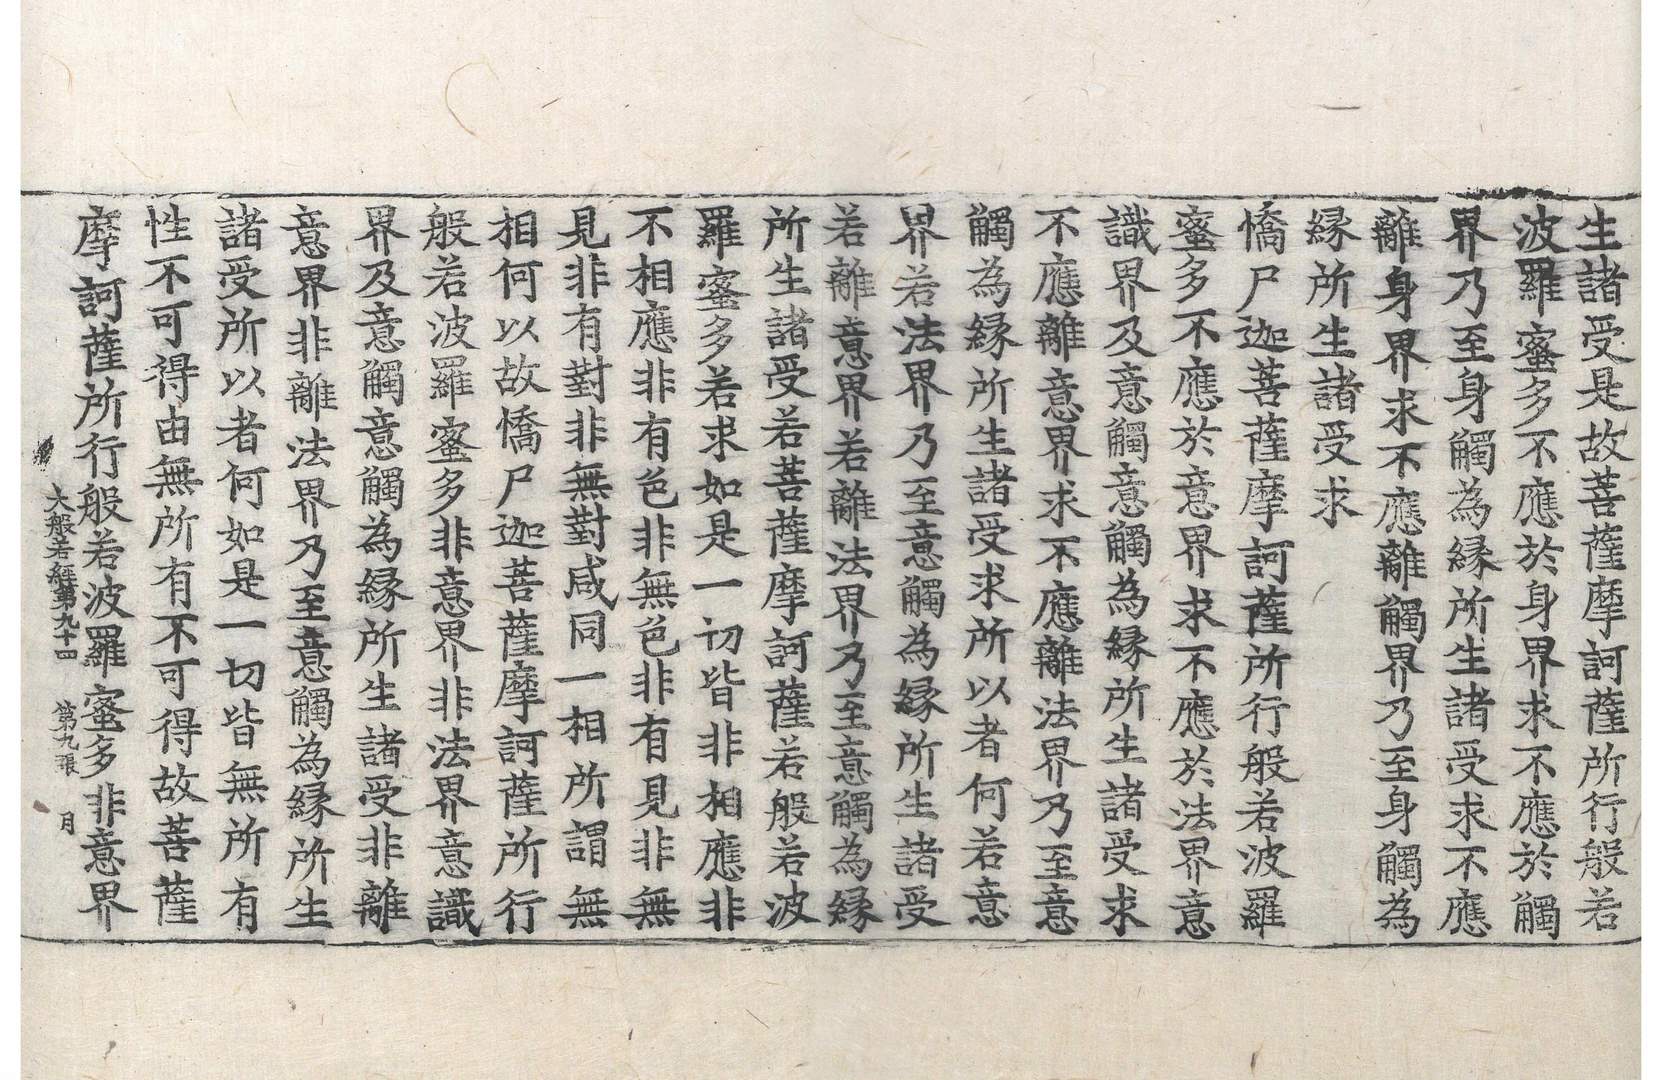 生諸受是故菩薩摩訶薩所行般若
波羅蜜多不應於身界求不應於觸
界乃至身觸為縁所生諸受求不應
離身界求不應離觸界乃至身觸為
縁所生諸受求
憍尸迦菩薩摩訶薩所行般若波羅
蜜多不應於意界求不應於法界意
識界及意觸意觸為縁所生諸受求
不應離意界求不應離法界乃至意
觸為縁所生諸受求所以者何若意
界若法界乃至意觸為縁所生諸受
若離意界若離法界乃至意觸為縁
所生諸受若菩薩摩訶薩若般若波
羅蜜多若求如是一切皆非相應非
不相應非有色非無色非有見非無
見非有對非無對咸同一相所謂無
相何以故憍尸迦菩薩摩訶薩所行
般若波羅蜜多非意界非法界意識
界及意觸意觸為縁所生諸受非離
意界非離法界乃至意觸為縁所生
諸受所以者何如是一切皆無所有
性不可得由無所有不可得故菩薩
摩訶薩所行般若波羅蜜多非意界
大般若經第九十四 第九張 月